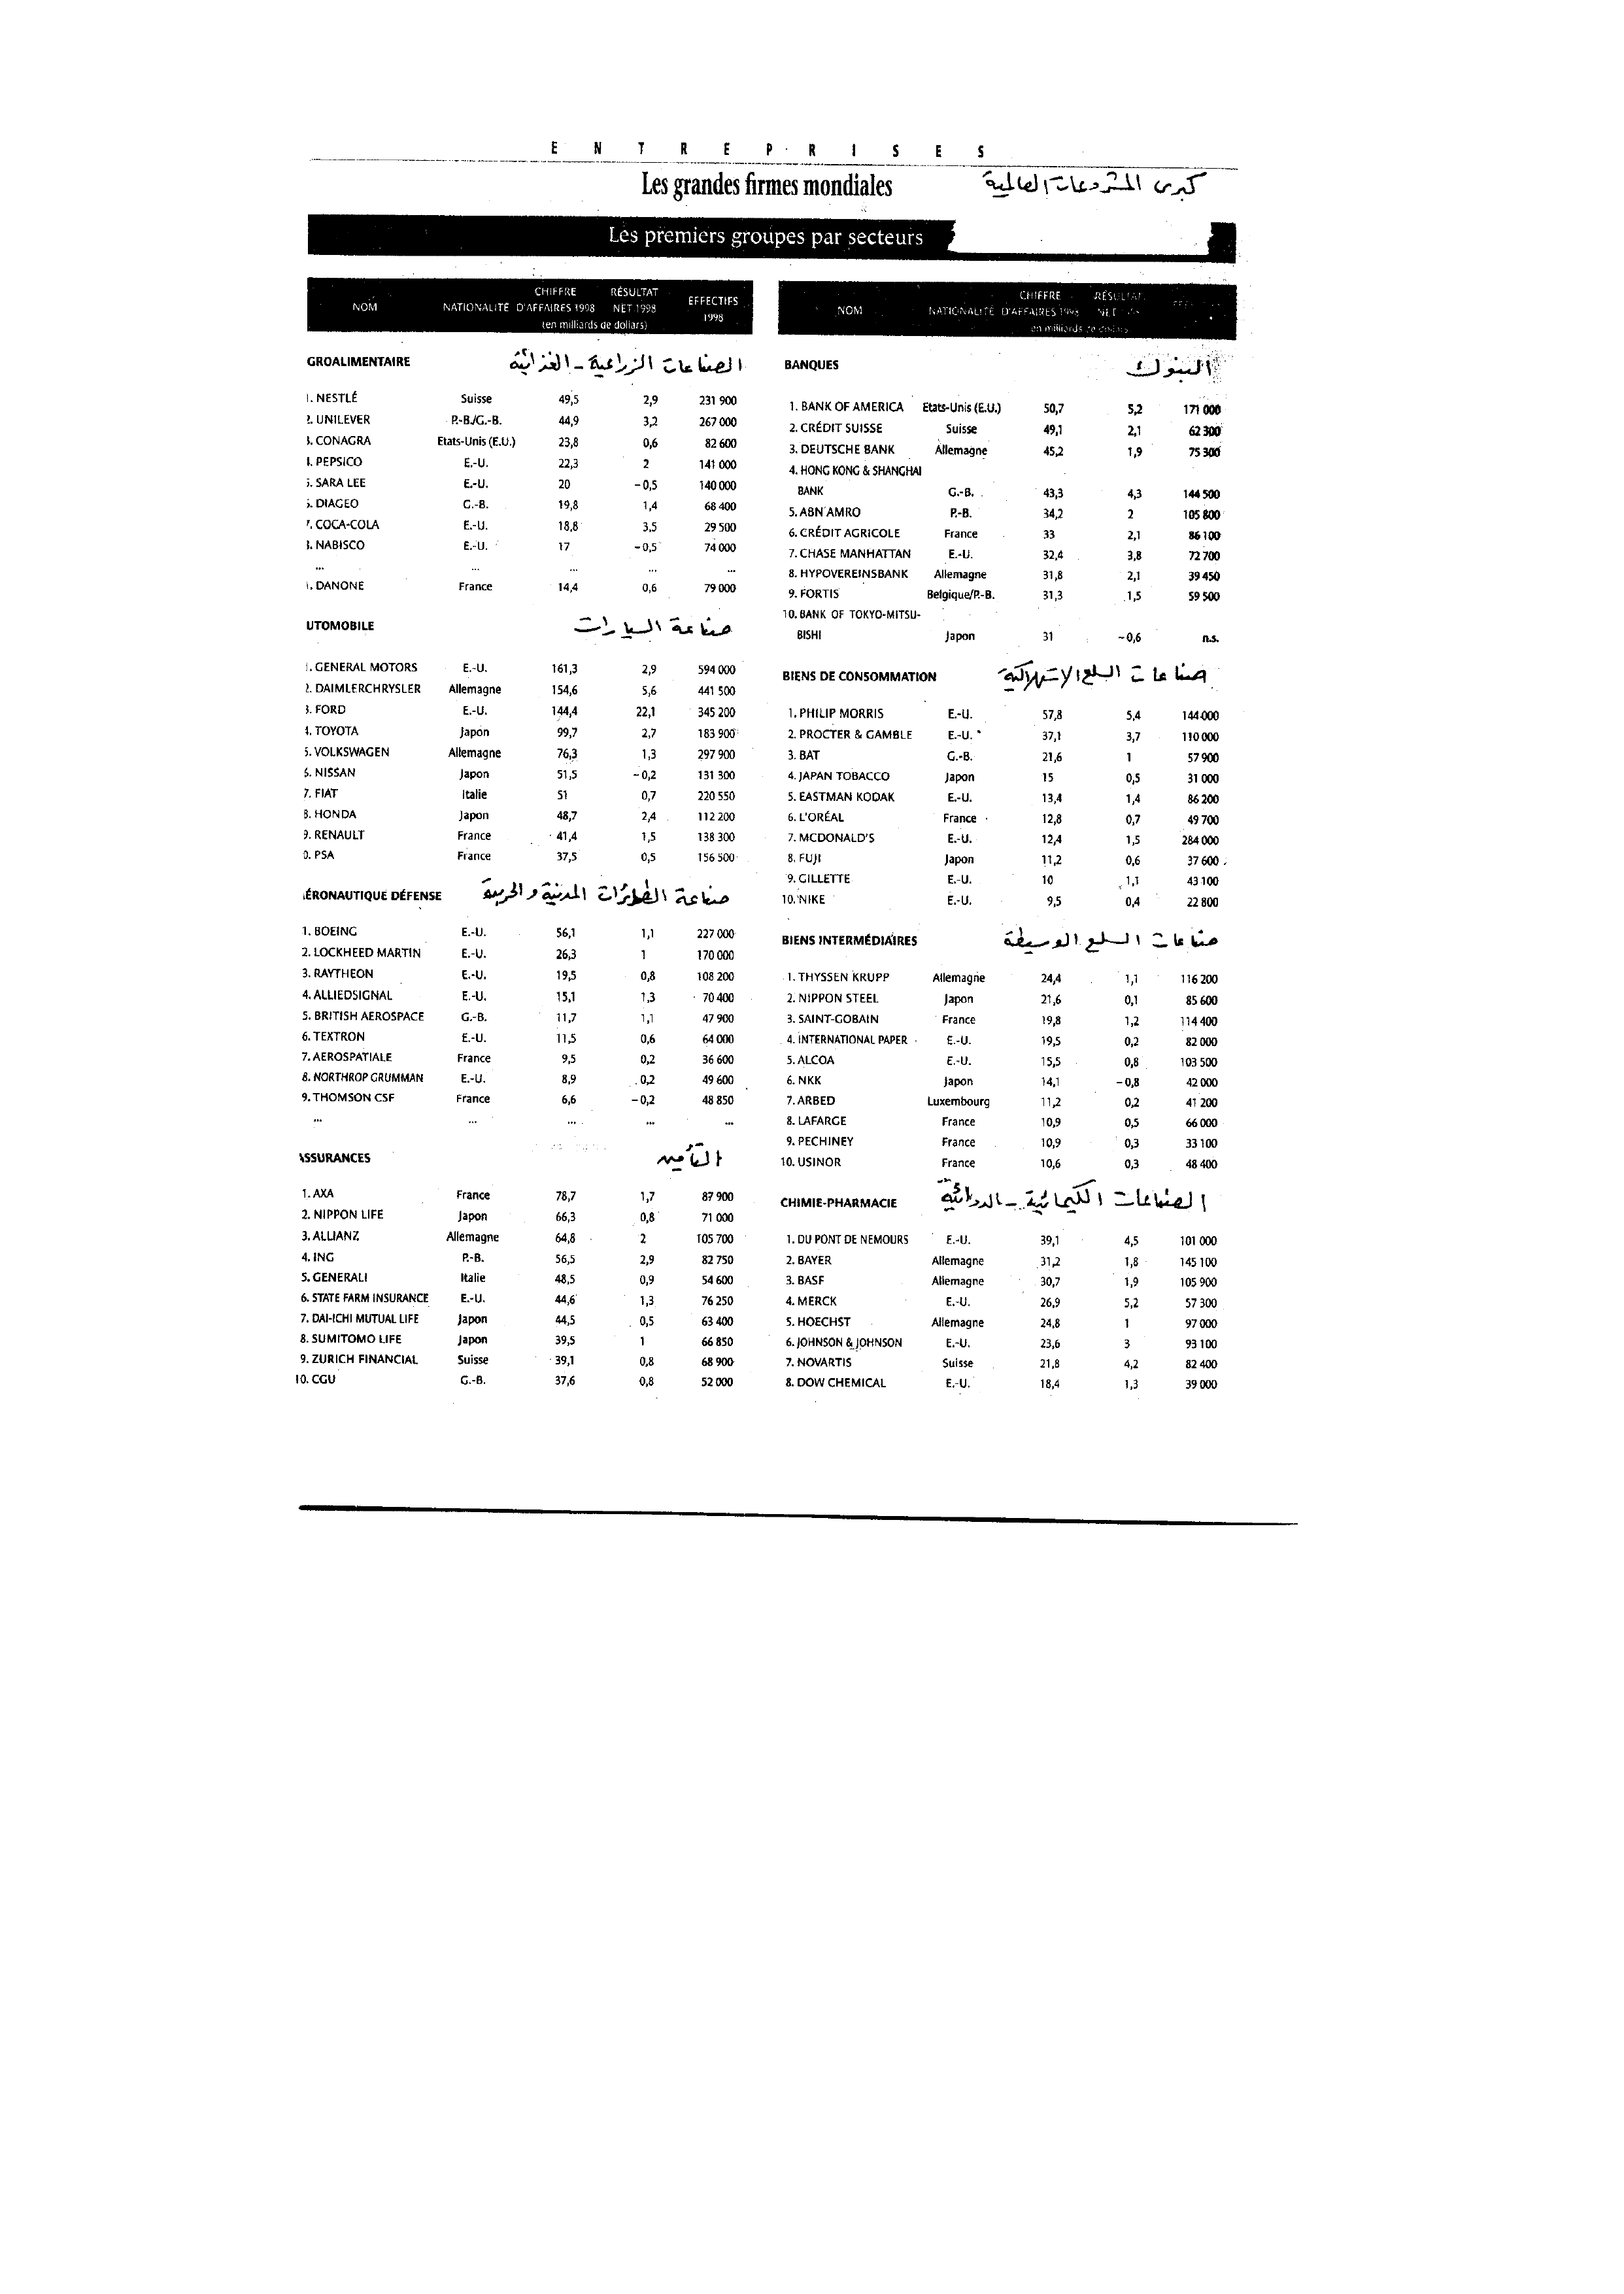 ENTREPRISES
Les grandes firmes mondiales كبرى المشروعات العالمية
Les premiers groupes par secteurs
NOM NATIONALITÉ CHIFFRE D'AFFAIRES 1998 RÉSULTAT NET 1998 EFFECTIFS 1998
(en milliards de dollars)
GROALIMENTAIRE الصناعات الزراعية - الغذائية
1. NESTLÉ Suisse 49,5 2,9 231 900
2. UNILEVER P.-B./G.-B. 44,9 3,2 267 000
3. CONAGRA Etats-Unis (E.U.) 23,8 0,6 82 600
4. PEPSICO E.-U. 22,3 2 141 000
5. SARA LEE E.-U. 20 -0,5 140 000
6. DIAGEO G.-B. 19,8 1,4 68 400
7. COCA-COLA E.-U. 18,8 3,5 29 500
8. NABISCO E.-U. 17 -0,5 74 000
... ... ... ... ...
. DANONE France 14,4 0,6 79 000
UTOMOBILE صناعة السيارات
1. GENERAL MOTORS E.-U. 161,3 2,9 594 000
2. DAIMLERCHRYSLER Allemagne 154,6 5,6 441 500
3. FORD E.-U. 144,4 22,1 345 200
4. TOYOTA Japon 99,7 2,7 183 900
5. VOLKSWAGEN Allemagne 76,3 1,3 297 900
6. NISSAN Japon 51,5 -0,2 131 300
7. FIAT Italie 51 0,7 220 550
8. HONDA Japon 48,7 2,4 112 200
9. RENAULT France 41,4 1,5 138 300
0. PSA France 37,5 0,5 156 500
AÉRONAUTIQUE DÉFENSE صناعة الطائرات المدنية والحربية
1. BOEING E.-U. 56,1 1,1 227 000
2. LOCKHEED MARTIN E.-U. 26,3 1 170 000
3. RAYTHEON E.-U. 19,5 0,8 108 200
4. ALLIEDSIGNAL E.-U. 15,1 1,3 70 400
5. BRITISH AEROSPACE G.-B. 11,7 1,1 47 900
6. TEXTRON E.-U. 11,5 0,6 64 000
7. AEROSPATIALE France 9,5 0,2 36 600
8. NORTHROP GRUMMAN E.-U. 8,9 0,2 49 600
9. THOMSON CSF France 6,6 -0,2 48 850
... ... ... ... ...
ASSURANCES التأمين
1. AXA France 78,7 1,7 87 900
2. NIPPON LIFE Japon 66,3 0,8 71 000
3. ALLIANZ Allemagne 64,8 2 105 700
4. ING P.-B. 56,5 2,9 82 750
5. GENERALI Italie 48,5 0,9 54 600
6. STATE FARM INSURANCE E.-U. 44,6 1,3 76 250
7. DAI-ICHI MUTUAL LIFE Japon 44,5 0,5 63 400
8. SUMITOMO LIFE Japon 39,5 1 66 850
9. ZURICH FINANCIAL Suisse 39,1 0,8 68 900
10. CGU G.-B. 37,6 0,8 52 000
NOM NATIONALITÉ CHIFFRE D'AFFAIRES 1998 RÉSULTAT NET
en milliards de dollars
BANQUES البنوك
1. BANK OF AMERICA Etats-Unis (E.U.) 50,7 5,2 171 000
2. CRÉDIT SUISSE Suisse 49,1 2,1 62 300
3. DEUTSCHE BANK Allemagne 45,2 1,9 75 300
4. HONG KONG & SHANGHAI
BANK G.-B. 43,3 4,3 144 500
5. ABN AMRO P.-B. 34,2 2 105 800
6. CRÉDIT AGRICOLE France 33 2,1 86 100
7. CHASE MANHATTAN E.-U. 32,4 3,8 72 700
8. HYPOVEREINSBANK Allemagne 31,8 2,1 39 450
9. FORTIS Belgique/P.-B. 31,3 1,5 59 500
10. BANK OF TOKYO-MITSU-
BISHI Japon 31 -0,6 n.s.
BIENS DE CONSOMMATION صناعات السلع الاستهلاكية
1. PHILIP MORRIS E.-U. 57,8 5,4 144 000
2. PROCTER & GAMBLE E.-U. 37,1 3,7 110 000
3. BAT G.-B. 21,6 1 57 900
4. JAPAN TOBACCO Japon 15 0,5 31 000
5. EASTMAN KODAK E.-U. 13,4 1,4 86 200
6. L'ORÉAL France 12,8 0,7 49 700
7. MCDONALD'S E.-U. 12,4 1,5 284 000
8. FUJI Japon 11,2 0,6 37 600
9. GILLETTE E.-U. 10 1,1 43 100
10. NIKE E.-U. 9,5 0,4 22 800
BIENS INTERMÉDIAIRES صناعات السلع الوسيطة
1. THYSSEN KRUPP Allemagne 24,4 1,1 116 200
2. NIPPON STEEL Japon 21,6 0,1 85 600
3. SAINT-GOBAIN France 19,8 1,2 114 400
4. INTERNATIONAL PAPER E.-U. 19,5 0,2 82 000
5. ALCOA E.-U. 15,5 0,8 103 500
6. NKK Japon 14,1 -0,8 42 000
7. ARBED Luxembourg 11,2 0,2 41 200
8. LAFARGE France 10,9 0,5 66 000
9. PECHINEY France 10,9 0,3 33 100
10. USINOR France 10,6 0,3 48 400
CHIMIE-PHARMACIE الصناعات الكيمائية - الدوائية
1. DU PONT DE NEMOURS E.-U. 39,1 4,5 101 000
2. BAYER Allemagne 31,2 1,8 145 100
3. BASF Allemagne 30,7 1,9 105 900
4. MERCK E.-U. 26,9 5,2 57 300
5. HOECHST Allemagne 24,8 1 97 000
6. JOHNSON & JOHNSON E.-U. 23,6 3 93 100
7. NOVARTIS Suisse 21,8 4,2 82 400
8. DOW CHEMICAL E.-U. 18,4 1,3 39 000